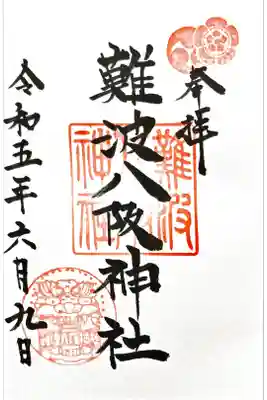 奉拝
難波八阪神社
令和五年六月九日
難波
神社